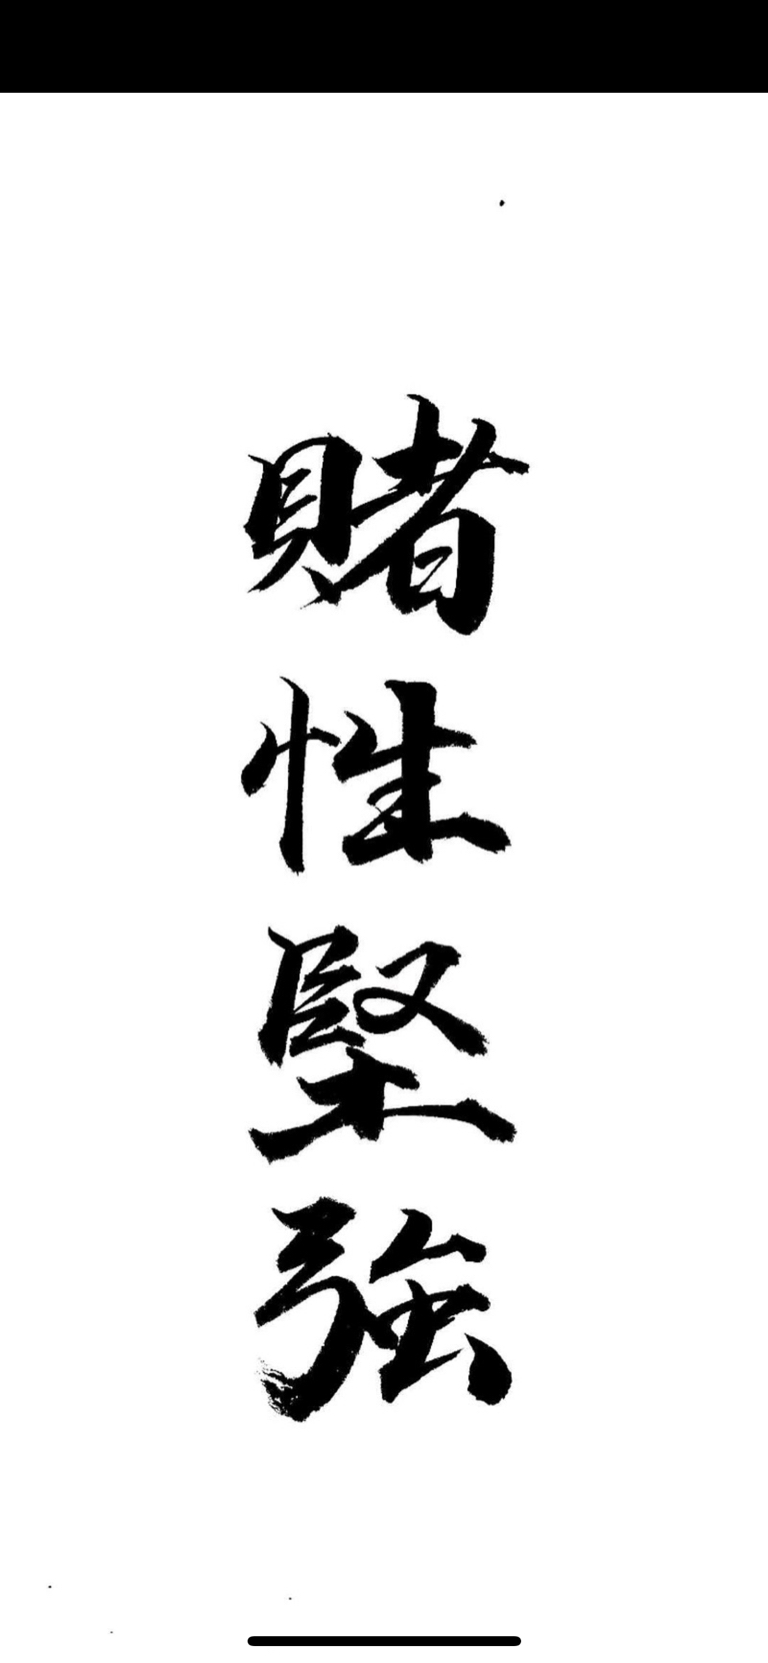 賭性堅強